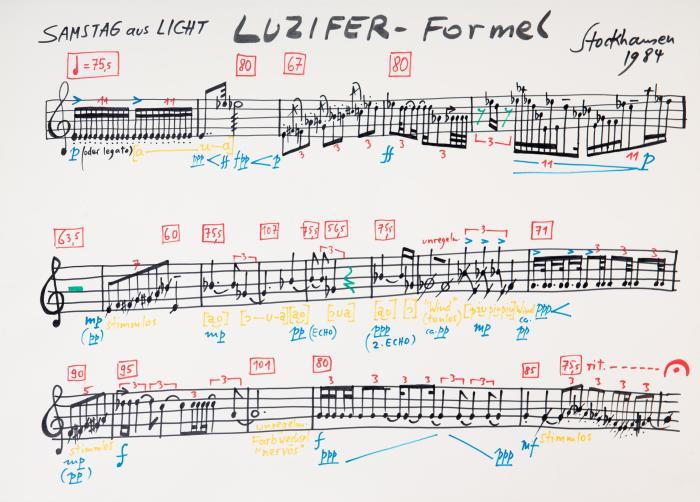 SAMSTAG aus LICHT LUZIFER-Formel
Stockhausen
1984
♩=75,5 80 67 80
11 11
p (oder legato) [a u-a] ppp < ff fpp < p 3 3 3 ff 3 3 3 11 11 p
63,5 60 75,5 107 75,5 56,5 75,5 unregelm. 71
7 3 3 3 3 3 3
mp stimmlos [a,o] [a,o] [a,o] [ɔ] "Wind" ppp <
(pp) mp pp (ECHO) ppp (tonlos) mp ca.
(2. ECHO) ca. pp pp
90 95 101 80 85 75,5 rit.
5 3 3 3 3 3 3 3 3 3 3 3 3
stimmlos unregelm. f mf stimmlos
mp f Farbwechsel ppp ppp
(pp) "nervös"